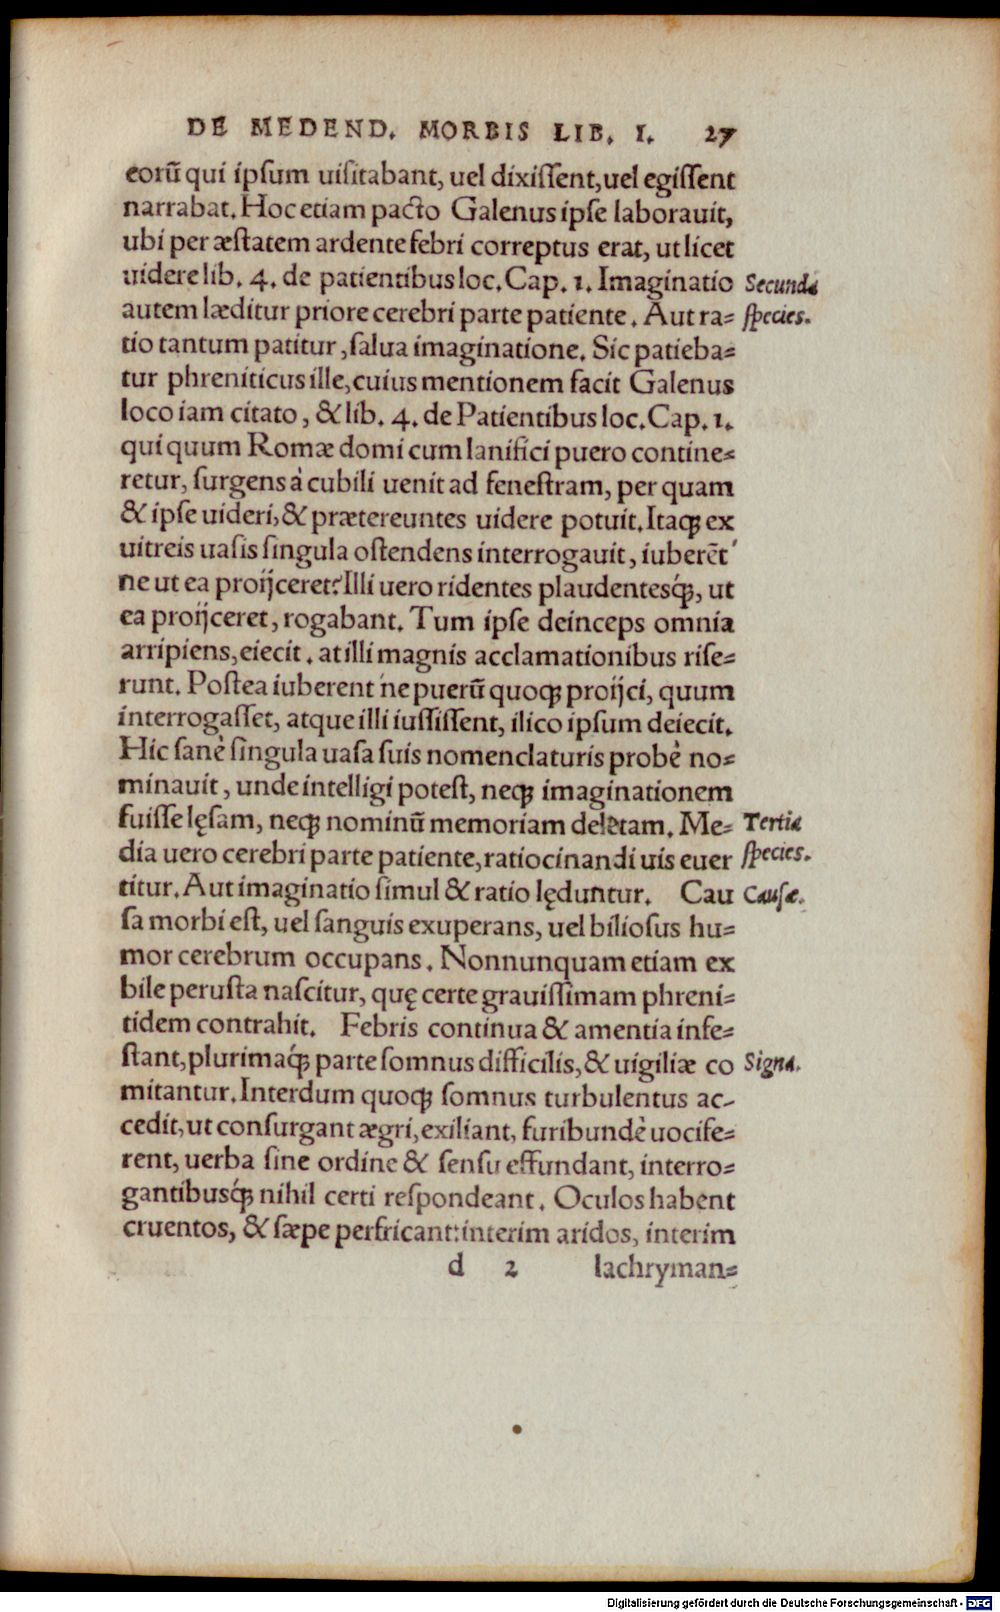 DE MEDEND. MORBIS LIB. I. 27
eorũ qui ipsum uisitabant, uel dixissent, uel egissent
narrabat. Hoc etiam pacto Galenus ipse laborauit,
ubi per æstatem ardente febri correptus erat, ut licet
uidere lib. 4. de patientibus loc. Cap. 1. Imaginatio
Secunda
autem læditur priore cerebri parte patiente. Aut ra=
species.
tio tantum patitur, salua imaginatione. Sic patieba=
tur phreniticus ille, cuius mentionem facit Galenus
loco iam citato, & lib. 4. de Patientibus loc. Cap. 1.
qui quum Romæ domi cum lanifici puero contine=
retur, surgens à cubili uenit ad fenestram, per quam
& ipse uideri, & prætereuntes uidere potuit. Itaq; ex
uitreis uasis singula ostendens interrogauit, iuberẽt
ne ut ea proijceret? Illi uero ridentes plaudentesq́;, ut
ea proijceret, rogabant. Tum ipse deinceps omnia
arripiens, eiecit. at illi magnis acclamationibus rise=
runt. Postea iuberent ne puerũ quoq; proijci, quum
interrogasset, atque illi iussissent, ilico ipsum deiecit.
Hic sanè singula uasa suis nomenclaturis probè no=
minauit, unde intelligi potest, neq; imaginationem
fuisse lęsam, neq; nominũ memoriam deletam. Me=
Tertia
dia uero cerebri parte patiente, ratiocinandi uis euer
species.
titur. Aut imaginatio simul & ratio lęduntur. Cau
Causæ.
sa morbi est, uel sanguis exuperans, uel biliosus hu=
mor cerebrum occupans. Nonnunquam etiam ex
bile perusta nascitur, quę certe grauissimam phreni=
tidem contrahit. Febris continua & amentia infe=
stant, plurimaq́; parte somnus difficilis, & uigiliæ co
Signa.
mitantur. Interdum quoq; somnus turbulentus ac-
cedit, ut consurgant ægri, exiliant, furibundè uocife=
rent, uerba sine ordine & sensu effundant, interro=
gantibusq́; nihil certi respondeant. Oculos habent
cruentos, & sæpe perfricant: interim aridos, interim
d 2 lachryman=
Digitalisierung gefördert durch die Deutsche Forschungsgemeinschaft - DFG